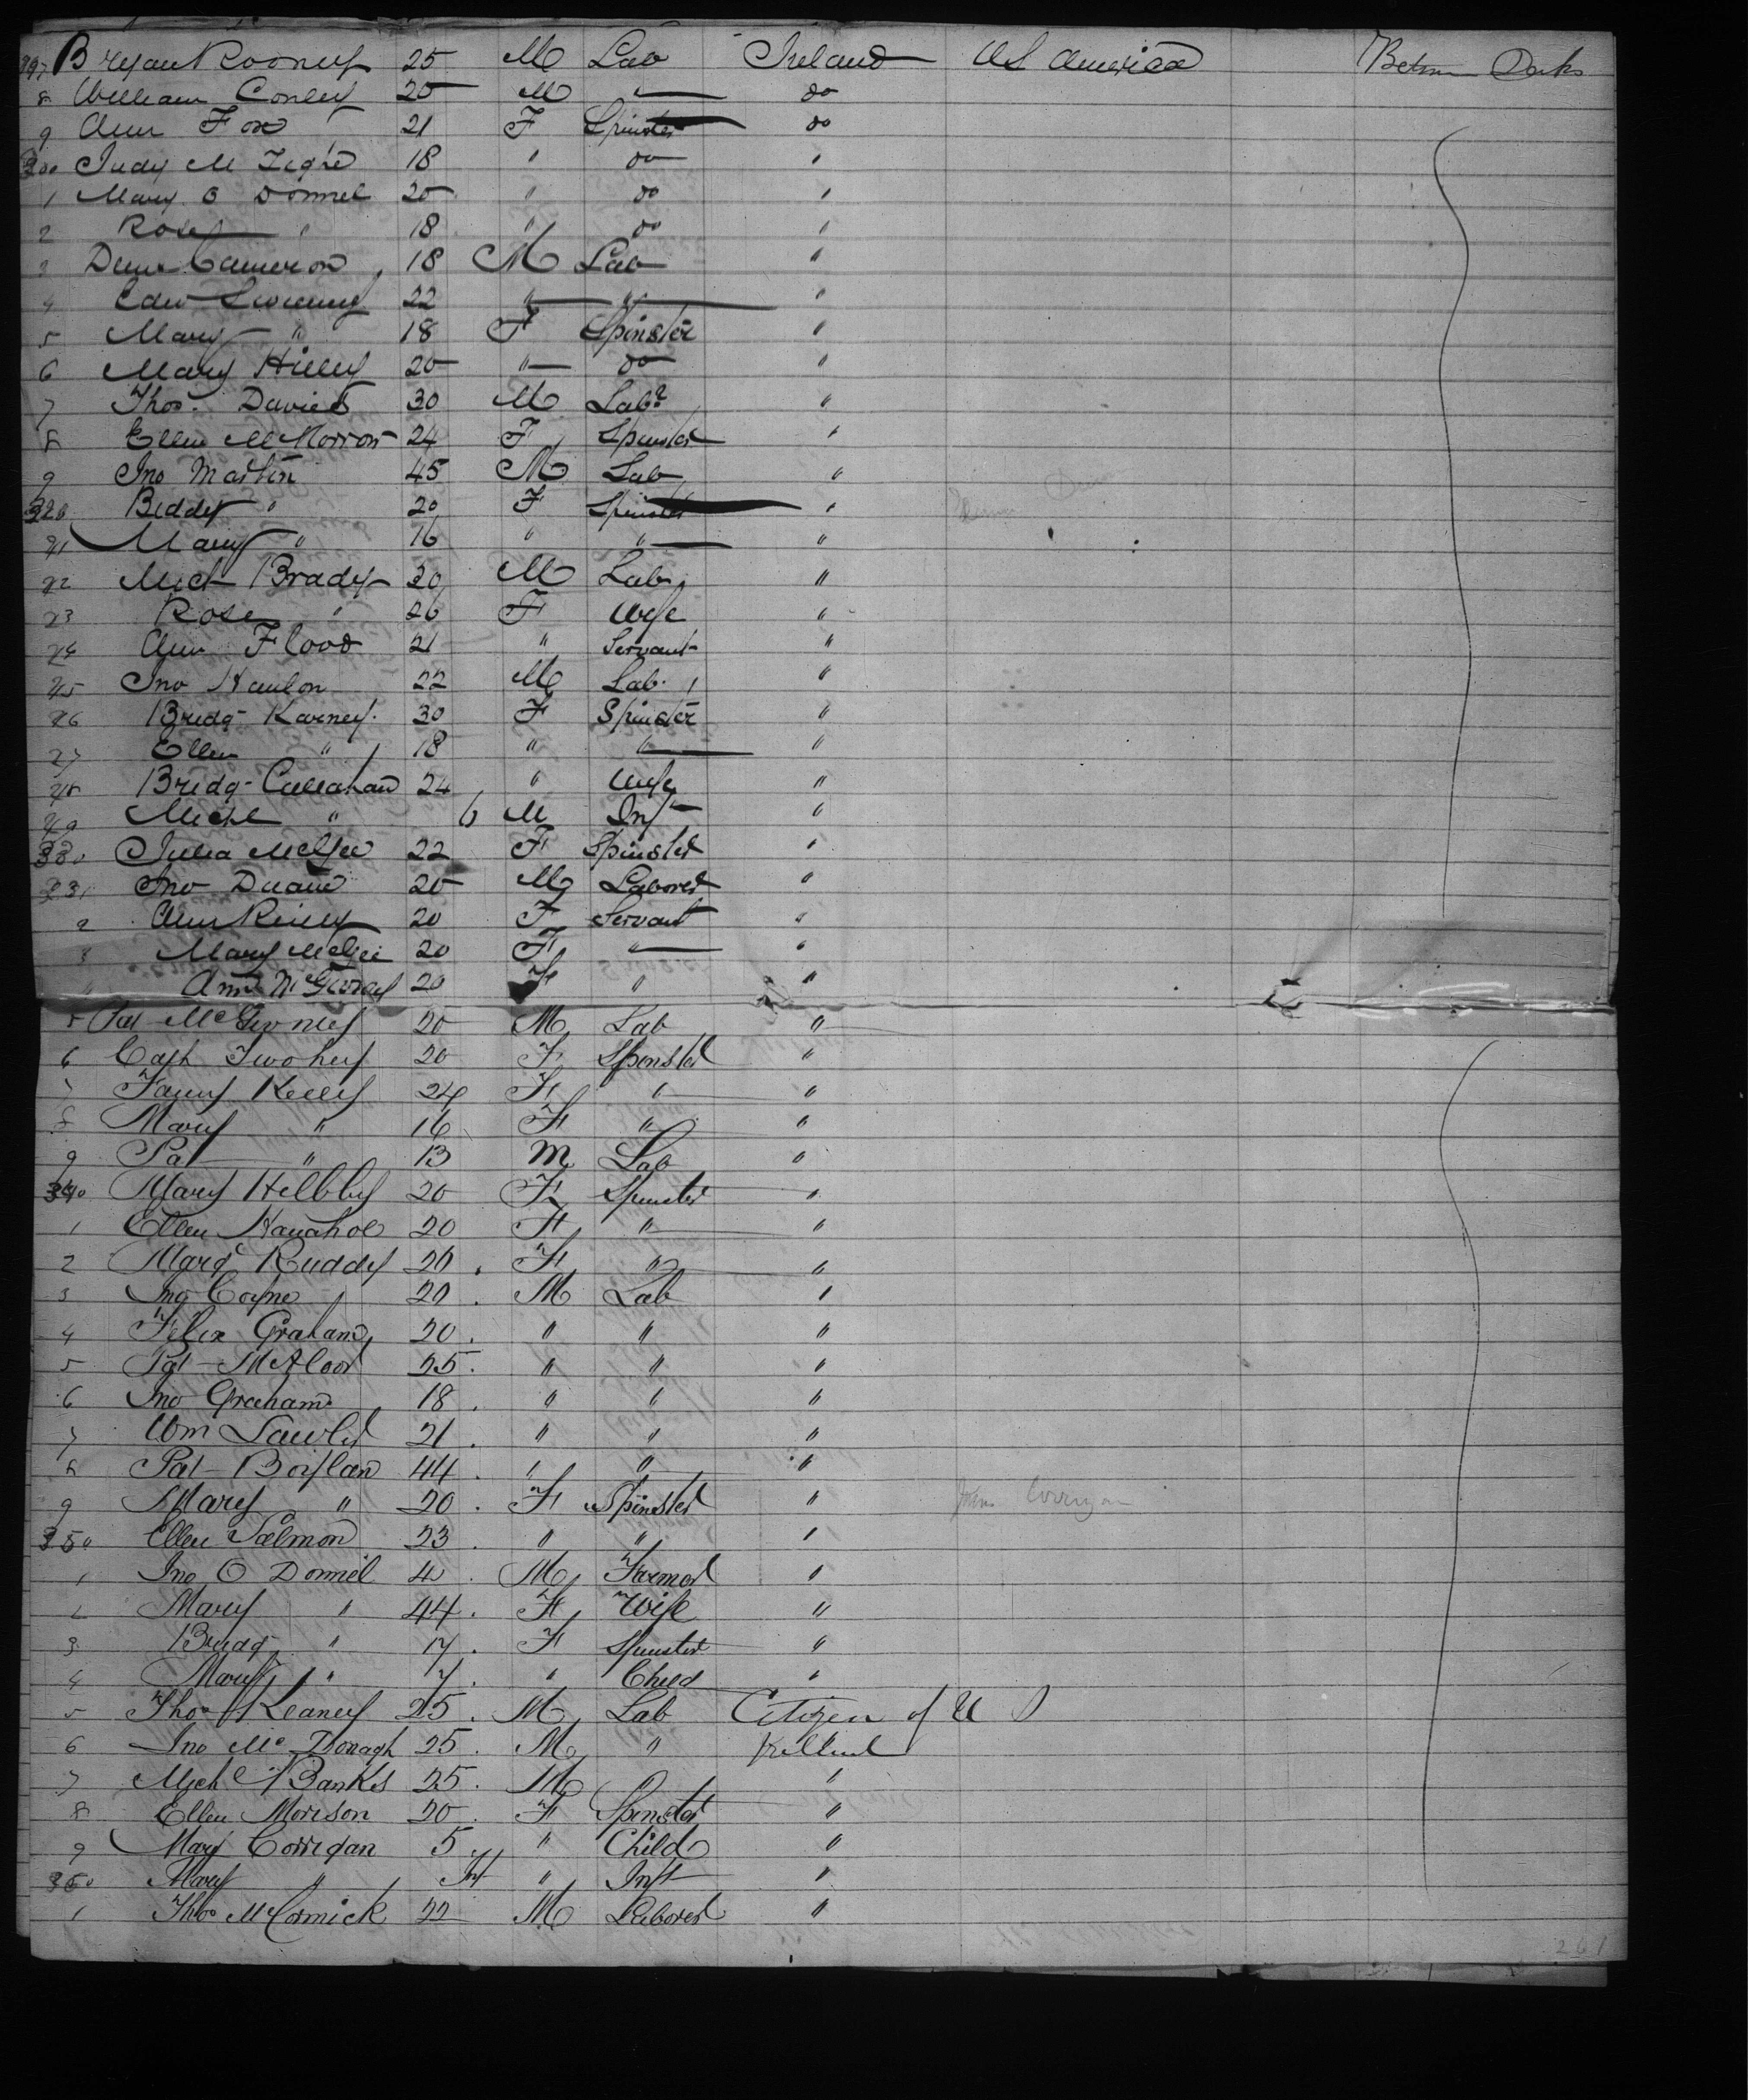 297 Bryan Rooney 25 M Lab Ireland US America Betwn Decks
8 William Conley 25 M " do
9 Ann Fox 21 F Spinster do
300 Judy M 18 " do "
1 Mary O Donnel 20 " do "
2 Rose " 18 " do "
3 Cameron 18 M Lab "
4 Edw Sweeney 22 " " "
5 Mary " 18 F Spinster "
6 Mary Hilley 20 " do "
7 Thos. Davies 30 M Labr "
8 Ellen McMorrow 24 F Spinster "
9 Jno Martin 45 M Lab "
320 Biddy " 20 F Spinster "
21 Mary " 16 " " "
22 Mich Brady 30 M Lab "
23 Rose " 26 F Wife "
24 Ann Flood 21 " Servant "
25 Jno Hanlon 22 M Lab. "
26 Bridg Karney. 30 F Spinster "
27 Ellen " 18 " " "
28 Bridg Callahan 24 " Wife "
29 Michl " 6 M Inft "
330 Julia McGee 22 F Spinster "
331 Jno Duane 25 M Laborer "
2 Ann Reilly 20 F Servant "
3 Mary McGee 20 F " "
Ann 20 F " "
5 Pat 20 M Lab "
6 Cath Twohey 20 F Spinster "
7 Fanny Kelly 24 F " "
8 Mary " 16 F " "
9 Pat " 13 M Lab "
340 Mary 20 F Spinster "
1 Ellen Hanahoe 20 F " "
2 Margt Ruddy 20 F " "
3 Jno Coyne 20 M Lab "
4 Felix Graham 20 " " "
5 Pat McAloor 25 " " "
6 Jno Graham 18 " " "
7 Wm Lawler 21 " " "
8 Pat Boylan 44 " " "
9 Mary " 20 F Spinster " John Corrigan
350 Ellen Salmon 23 " " "
1 Jno O Donnel 40 M Farmer "
2 Mary " 44 F Wife "
3 Bridg " 17 F Spinster "
4 Mary " 7 " Child "
5 Thos Keaney 25 M Lab Citizen of U S
6 Jno McDonagh 25 M "
7 Michl Banks 25 M " "
8 Ellen Morison 20 F Spinster "
9 Mary Corrigan 5 " Child "
360 Mary " Inf " Inft "
1 Thos McCormick 22 M Laborer "
261